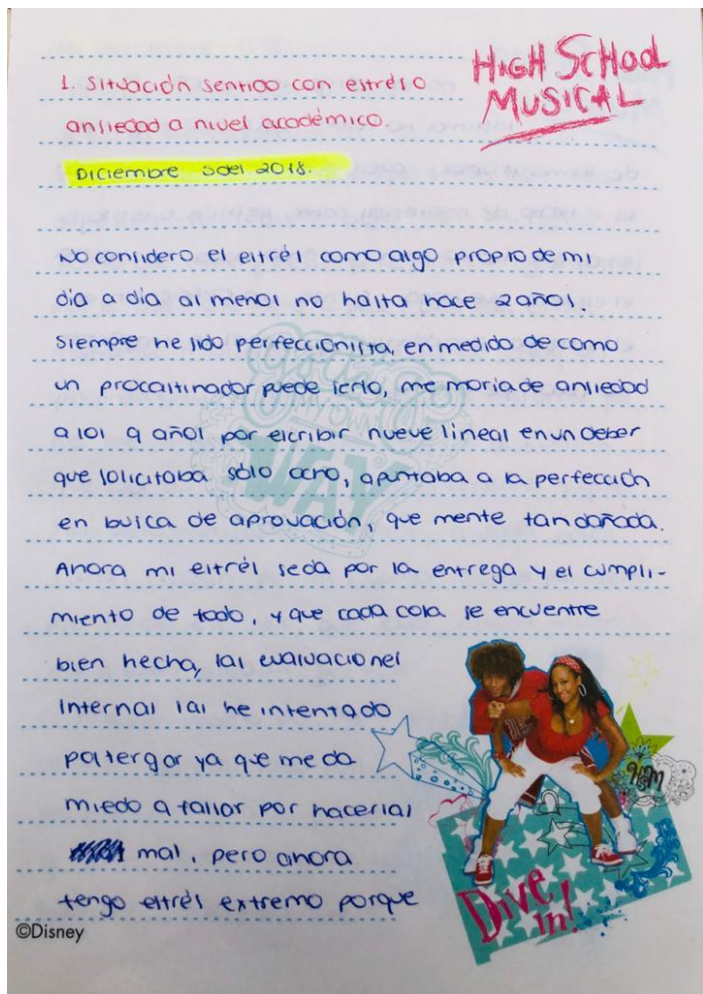 HIGH SCHOOL
MUSICAL
1. Situación sentido con estrés o
ansiedad a nivel académico.
Diciembre 5 del 2018.
No considero el estrés como algo propio de mi
día a día al menos no hasta hace 2 años.
Siempre he sido perfeccionista, en medido de como
un procastinador puede serlo, me moria de ansiedad
a los 9 años por escribir nueve lineas en un deber
que solicitaba sólo ocho, apuntaba a la perfección
en busca de aprovación, que mente tan dañada.
Ahora mi estrés se da por la entrega y el cumpli-
miento de todo, y que cada cosa se encuentre
bien hecha, las evaluaciones
Internas las he intentado
postergar ya que me da
miedo a fallar por hacerlas
mal, pero ahora
tengo estrés extremo porque
GOING
MY OWN
WAY
HSM
Dive
in!
©Disney